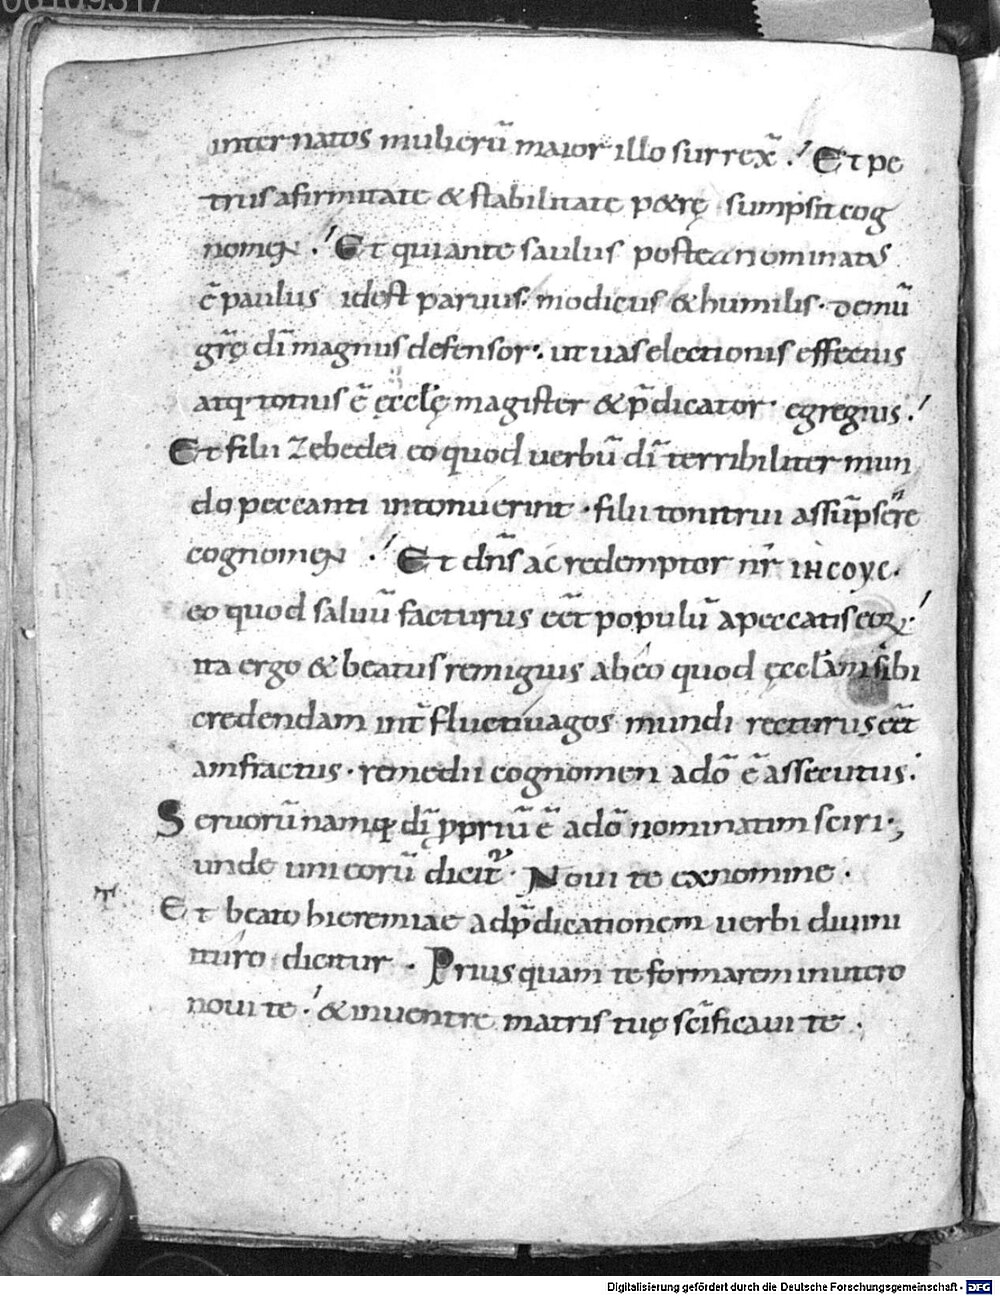 inter natos mulierū maior illo surrex̄ . Et pe
trus a firmitate & stabilitate petrę sumpsit cog
nomen . Et qui ante saulus postea nominatus
ē paulus id est paruus modicus & humilis · demū
gr̄ę dī magnus defensor . ut uas electionis effectus
atq· totius ē ęcclę magister & p̄dicator · egregius .
Et filii Zebedei eo quod uerbū dī terribiliter mun
do peccanti intonuerint · filii tonitrui assūpsēre
cognomen . Et dn̄s ac redemptor nr̄ IHCOYC .
eo quod saluū facturus eēt populū a peccatis eoꝝ
ita ergo & beatus remigius ab eo quod ęccl̄am sibi
credendam int̄ fluctiuagos mundi recturus eēt
amfractus · remedii cognomen a dō ē assecutus .
Seruorū namq; dī ꝓpriū ē a dō nominatim sciri ;
unde uni eorū dicit̄ · Noui te ex nomine .
Et beato hieremiae ad p̄dicationem uerbi diuini
ituro dicitur . Prius quam te formarem in utero
noui te . & in uentre matris tuę sc̄ificaui te .
Digitalisierung gefördert durch die Deutsche Forschungsgemeinschaft - DFG